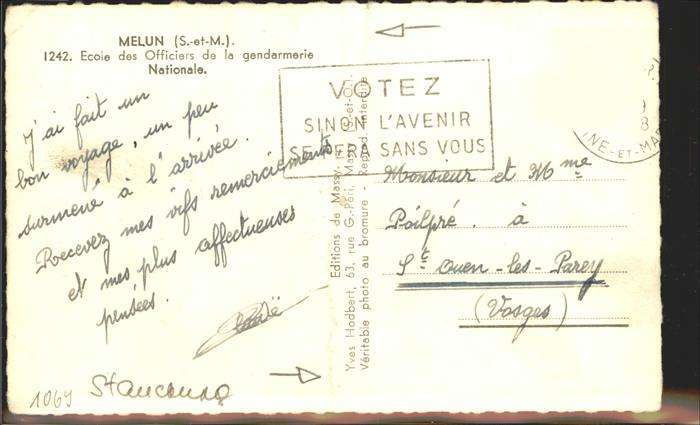 MELUN (S.-et-M.).
1242. Ecole des Officiers de la gendarmerie
Nationale.
J'ai fait un
bon voyage, un peu
surmené à l'arrivée.
Recevez mes vifs remerciements
et mes plus affectueuses
pensées.
1069
VOTEZ
SINON L'AVENIR
SE FERA SANS VOUS
NE-ET-MA
Editions de Massy
Yves Hodbert, 63, rue G.-Péri, Massy (S.-et-O.)
Véritable photo au bromure - Reprod. interdite
Monsieur et Mme
Poilpré. à
St Ouen-les-Parey
(Vosges)